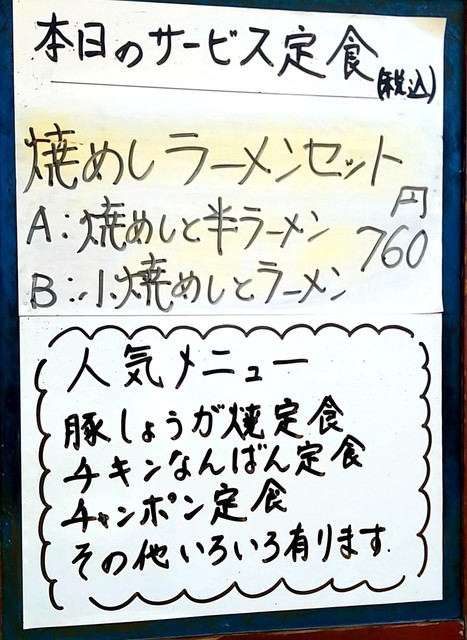 本日のサービス定食
(税込)
焼めしラーメンセット
A:焼めしと半ラーメン
円
760
B:小焼めしとラーメン
人気メニュー
豚しょうが焼定食
チキンなんばん定食
チャンポン定食
その他いろいろ有ります.